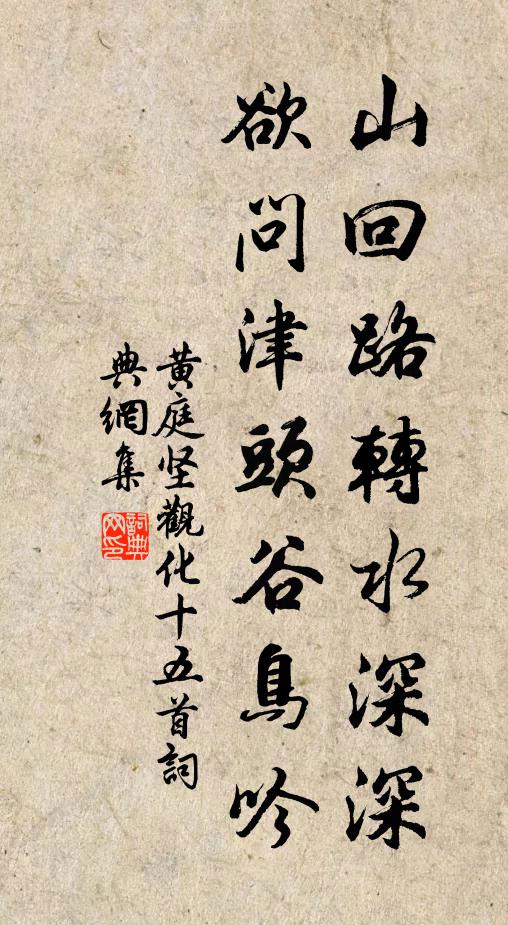 山回路轉水深深
欲問津頭谷鳥吟
黄庭坚觀化十五首詞
典網集
詞典網印